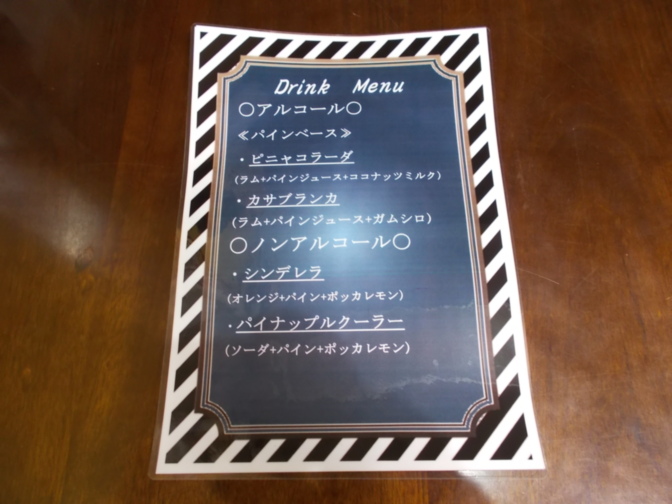 Drink Menu
〇アルコール〇
≪パインベース≫
・ピニャコラーダ
(ラム+パインジュース+ココナッツミルク)
・カサブランカ
(ラム+パインジュース+ガムシロ)
〇ノンアルコール〇
・シンデレラ
(オレンジ+パイン+ポッカレモン)
・パイナップルクーラー
(ソーダ+パイン+ポッカレモン)